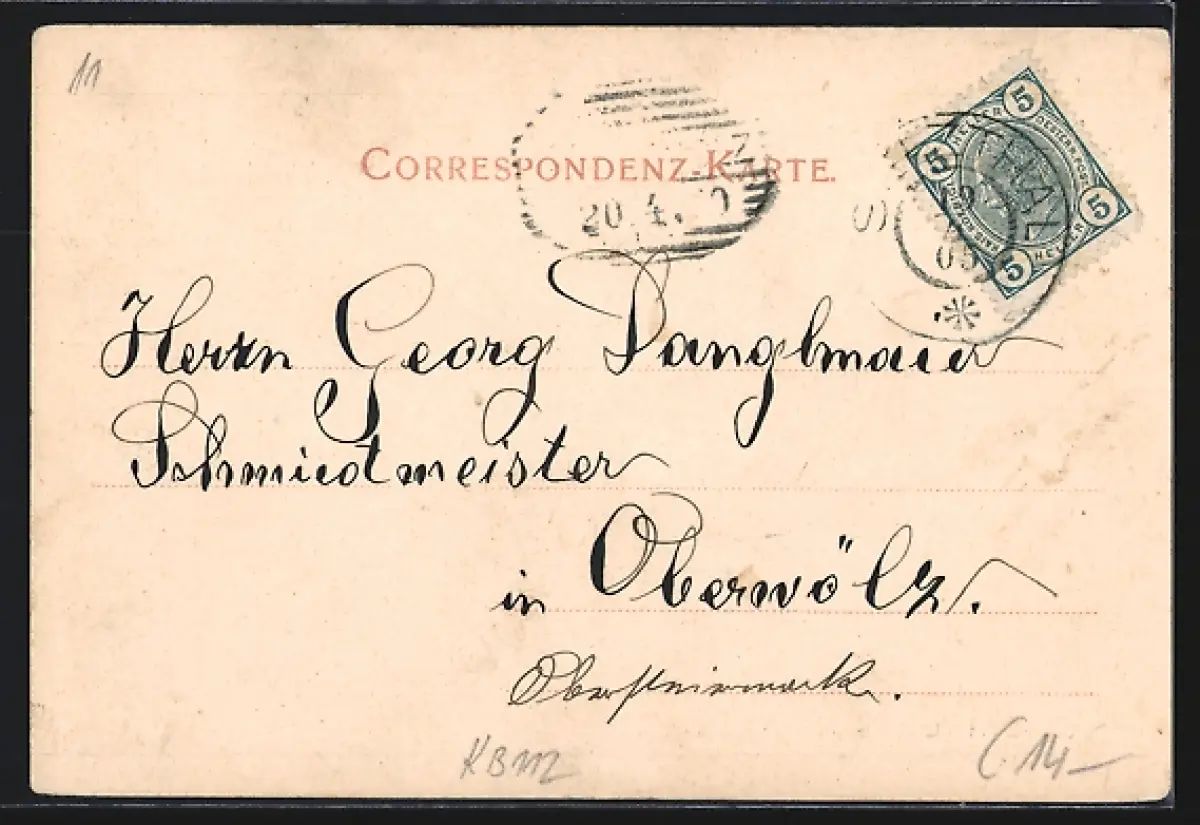 11
CORRESPONDENZ-KARTE.
20.4.
5 HELLER 5 HELLER 5 5
05
Herrn Georg Danglmaier
Schmiedmeister
in Oberwölz.
Obersteiermark.
C 14-